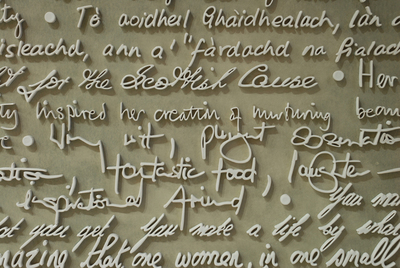 ty • Tè aoidheil Ghàidhealach, làn a
isleachd, ann a' "fàrdachd na fialach
for the Scottish Cause • Her
ty inspired her creation of nurturing beau
• wit,
Fantastic food, laughter
Inspirational friend • You ma
at you get. You make a life by what
mazing that one woman, in one small